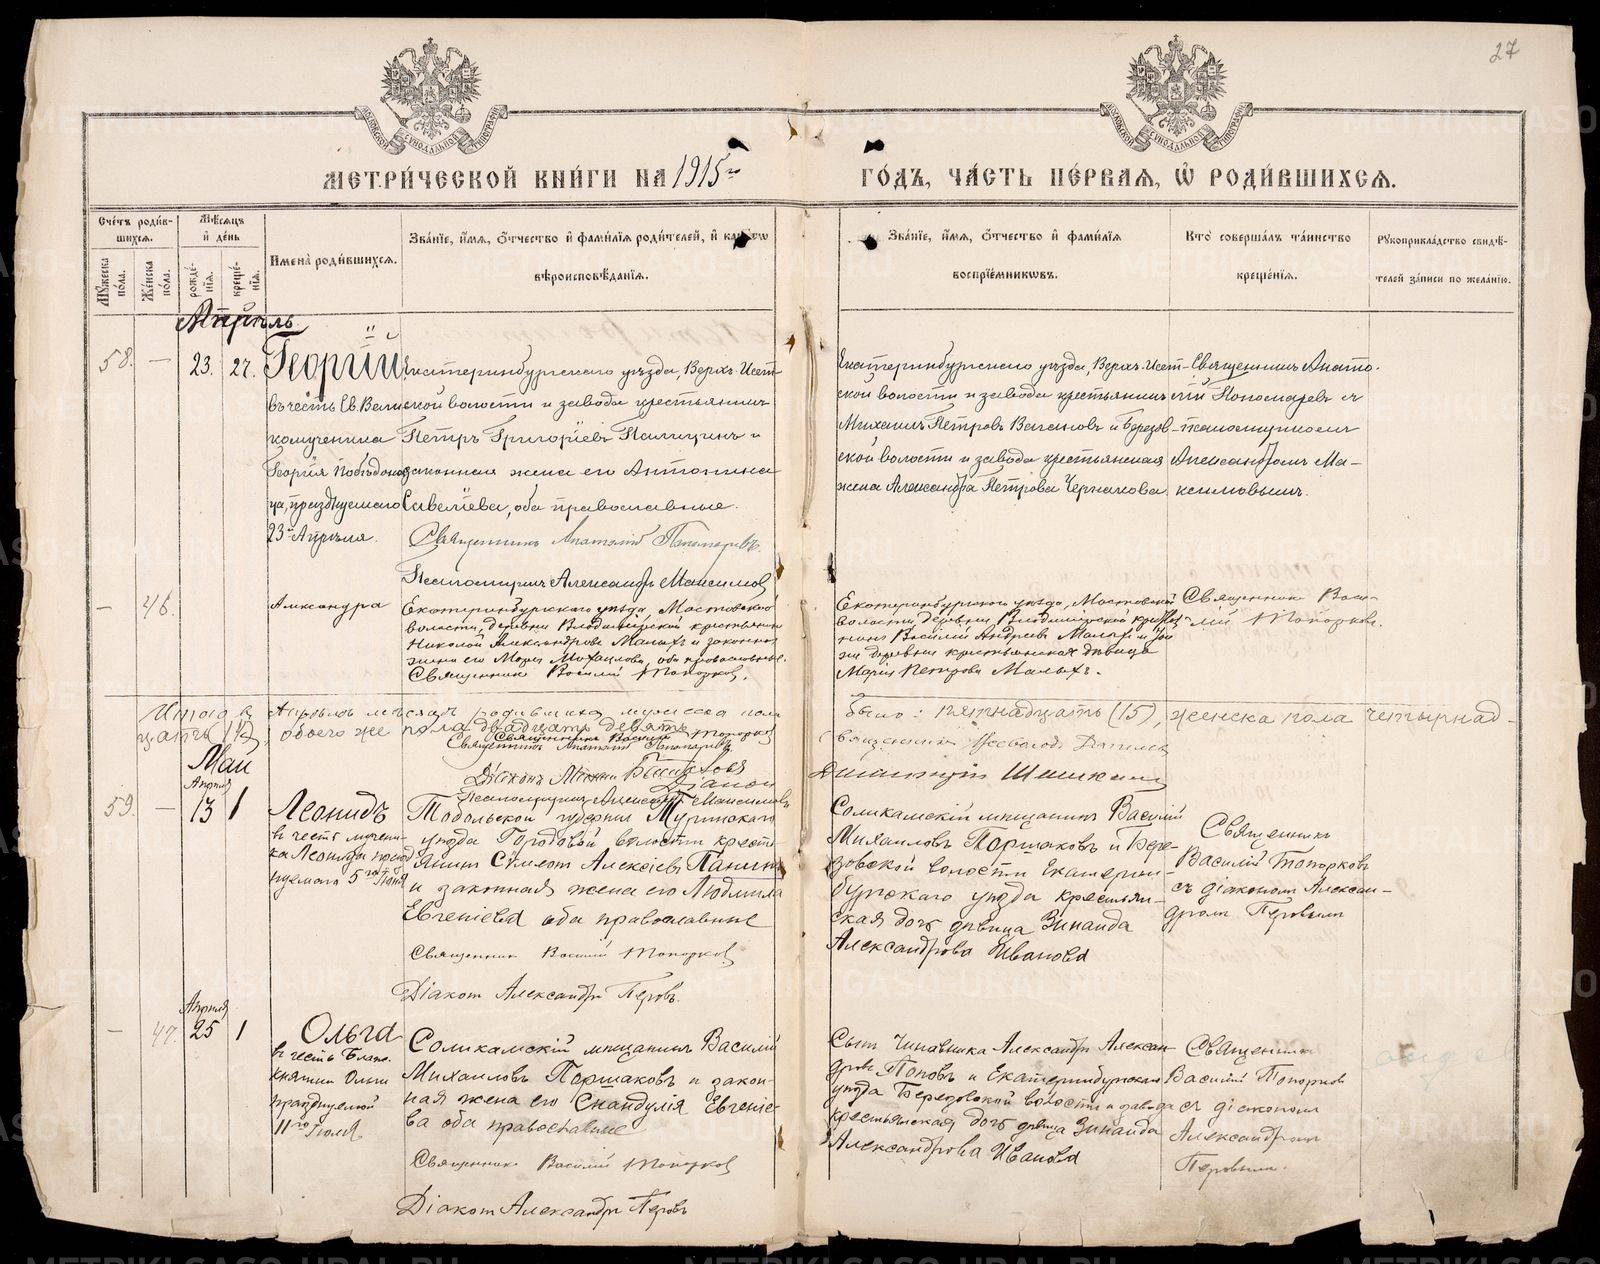 27
МЕТРИ́ЧЕСКОЙ КНИ́ГИ НА 1915 й
ГО́ДЪ, ЧА́СТЬ ПЕ́РВАЯ, Ѽ РОДИ́ВШИХСЯ.
Сче́тъ роди́в-
шихся.
Мꙋ́жеска по́ла.
Же́нска по́ла.
Мѣ́сяцъ
и̂ де́нь
рожде́нїя.
креще́нїя.
Имена̀ роди́вшихся.
Зва́нїе, и́мя, ѻ́тчество и̂ фами́лїя роди́телей, и̂ како́гѡ
вѣроисповѣ́данїя.
Зва́нїе, и́мя, ѻ́тчество и̂ фами́лїя
воспрїе́мникѡвъ.
Кто̀ соверша́лъ та́инство
креще́нїя.
Рꙋкоприкла́дство свидѣ́-
телей за́писи по жела́нїю.
Апрѣль
58. — 23. 27. Георгій
въ честь Св. Вели
комученика
Георгія Побѣдонос
ца, празднуемаго
23го Апрѣля.
Екатеринбургскаго уѣзда, Верхъ-Исет-
ской волости и завода крестьянинъ
Петръ Григоріевъ Палицинъ и
законная жена его Антонина
Савеліева, оба православные.
Священникъ Анатолій Пономаревъ.
Псаломщикъ Александръ Максимов
Екатеринбургскаго уѣзда, Верхъ-Исет-
ской волости и завода крестьянинъ
Михаилъ Петровъ Ваганов и Березов-
ской волости и завода крестьянская
жена Александра Петрова Черпакова.
Священникъ Анато-
лій Пономаревъ съ
псаломщикомъ
Александромъ Ма-
ксимовымъ.
— 46. Александра
Екатеринбургскаго уѣзда, Мостовской
волости, деревни Владимірской крестьянинъ
Николай Александровъ Малыхъ и законная
жена его Марія Михаилова, оба православные.
Священникъ Василій Топорков.
Екатеринбургскаго уѣзда, Мостовской
волости деревни Владимірской крестья
нинъ Василій Андреевъ Малыхъ и той
же деревни крестьянская дѣвица
Марія Петрова Малыхъ.
Священникъ Васи-
лій Топорков.
Итого въ Апрѣлѣ мѣсяцѣ родившихся мужеска пола
было: пятнадцать (15), женска пола четырнад-
цать (14), обоего же пола двадцать девять
Священникъ Василій Топорков
Священникъ Анатолій Пономаревъ
Священникъ
Діаконъ
Псаломщикъ Александръ Максимовъ
Май
Апрѣля
59. — 13 1 Леонидъ
въ честь мучени-
ка Леонида празд
нуемаго 5го Іюня
Тобольской губерніи Туринскаго
уѣзда Городовой волости кресть
янинъ Симеонъ Алексіевъ Панинъ
и законная жена его Людмила
Евгеніева оба православные
Священникъ Василій Топорков
Діакон Александръ Перовъ
Соликамскій мѣщанинъ Василій
Михаиловъ Поршаковъ и Бере-
зовской волости Екатерин-
бургскаго уѣзда крестьян-
ская дочь дѣвица Зинаида
Александрова Иванова
Священникъ
Василій Топорковъ
съ діакономъ Алексан-
дромъ Перовымъ
Апрѣля
— 47. 25 1 Ольга
въ честь Благов.
княгини Ольги
празднуемой
11го Іюля
Соликамскій мѣщанинъ Василій
Михаиловъ Поршаковъ и закон-
ная жена его Евгеніе-
ва оба православные
Священникъ Василій Топорков
Діакон Александръ Перовъ
Сынъ Чиновника Александръ Алексан-
дровъ Поповъ и Екатеринбургскаго
уѣзда Березовской волости и завода
крестьянская дочь дѣвица Зинаида
Александрова Иванова
Священникъ
Василій Топорков
съ діакономъ
Александромъ
Перовымъ.
METRIKI.GASO-URAL.RU